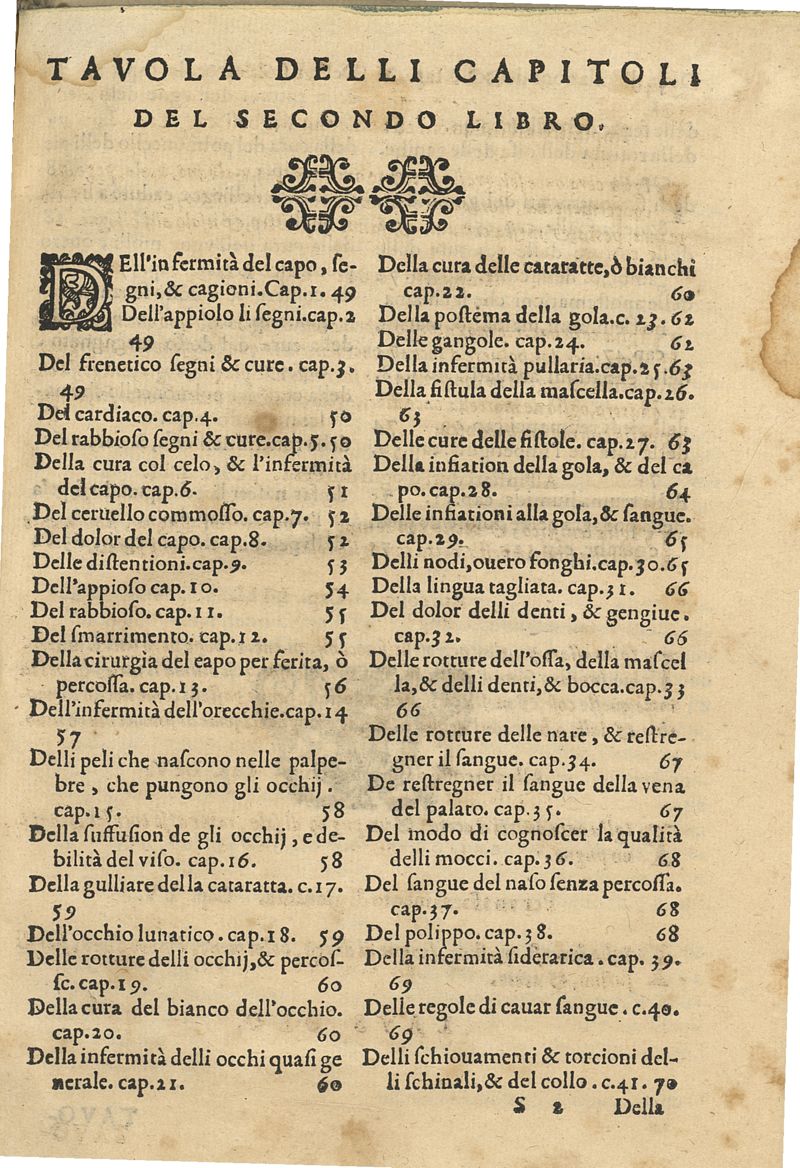 TAVOLA DELLI CAPITOLI
DEL SECONDO LIBRO.
DEll'infermità del capo, se-
gni, & cagioni. Cap. 1. 49
Dell'appiolo li segni. cap. 2
49
Del frenetico segni & cure. cap. 3.
49
Del cardiaco. cap. 4. 50
Del rabbioso segni & cure. cap. 5. 50
Della cura col celo, & l'infermità
del capo. cap. 6. 51
Del ceruello commosso. cap. 7. 52
Del dolor del capo. cap. 8. 52
Delle distentioni. cap. 9. 53
Dell'appioso cap. 10. 54
Del rabbioso. cap. 11. 55
Del smarrimento. cap. 12. 55
Della cirurgia del eapo per ferita, ò
percossa. cap. 13. 56
Dell'infermità dell'orecchie. cap. 14
57
Delli peli che nascono nelle palpe-
bre, che pungono gli occhij.
cap. 15. 58
Della suffusion de gli occhij, e de-
bilità del viso. cap. 16. 58
Della gulliare della cataratta. c. 17.
59
Dell'occhio lunatico. cap. 18. 59
Delle rotture delli occhij, & percos-
se. cap. 19. 60
Della cura del bianco dell'occhio.
cap. 20. 60
Della infermità delli occhi quasi ge
nerale. cap. 21. 60
Della cura delle cataratte, ò bianchi
cap. 22. 60
Della postema della gola. c. 23. 62
Delle gangole. cap. 24. 62
Della infermità pullaria. cap. 25. 63
Della fistula della mascella. cap. 26.
63
Delle cure delle fistole. cap. 27. 63
Della infiation della gola, & del ca
po. cap. 28. 64
Delle infiationi alla gola, & sangue.
cap. 29. 65
Delli nodi, ouero fonghi. cap. 30. 65
Della lingua tagliata. cap. 31. 66
Del dolor delli denti, & gengiue.
cap. 32. 66
Delle rotture dell'ossa, della mascel
la, & delli denti, & bocca. cap. 33
66
Delle rotture delle nare, & restre-
gner il sangue. cap. 34. 67
De restregner il sangue della vena
del palato. cap. 35. 67
Del modo di cognoscer la qualità
delli mocci. cap. 36. 68
Del sangue del naso senza percossa.
cap. 37. 68
Del polippo. cap. 38. 68
Della infermità siderarica. cap. 39.
69
Delle regole di cauar sangue. c. 40.
69
Delli schiouamenti & torcioni del-
li schinali, & del collo. c. 41. 70
S 2 Della